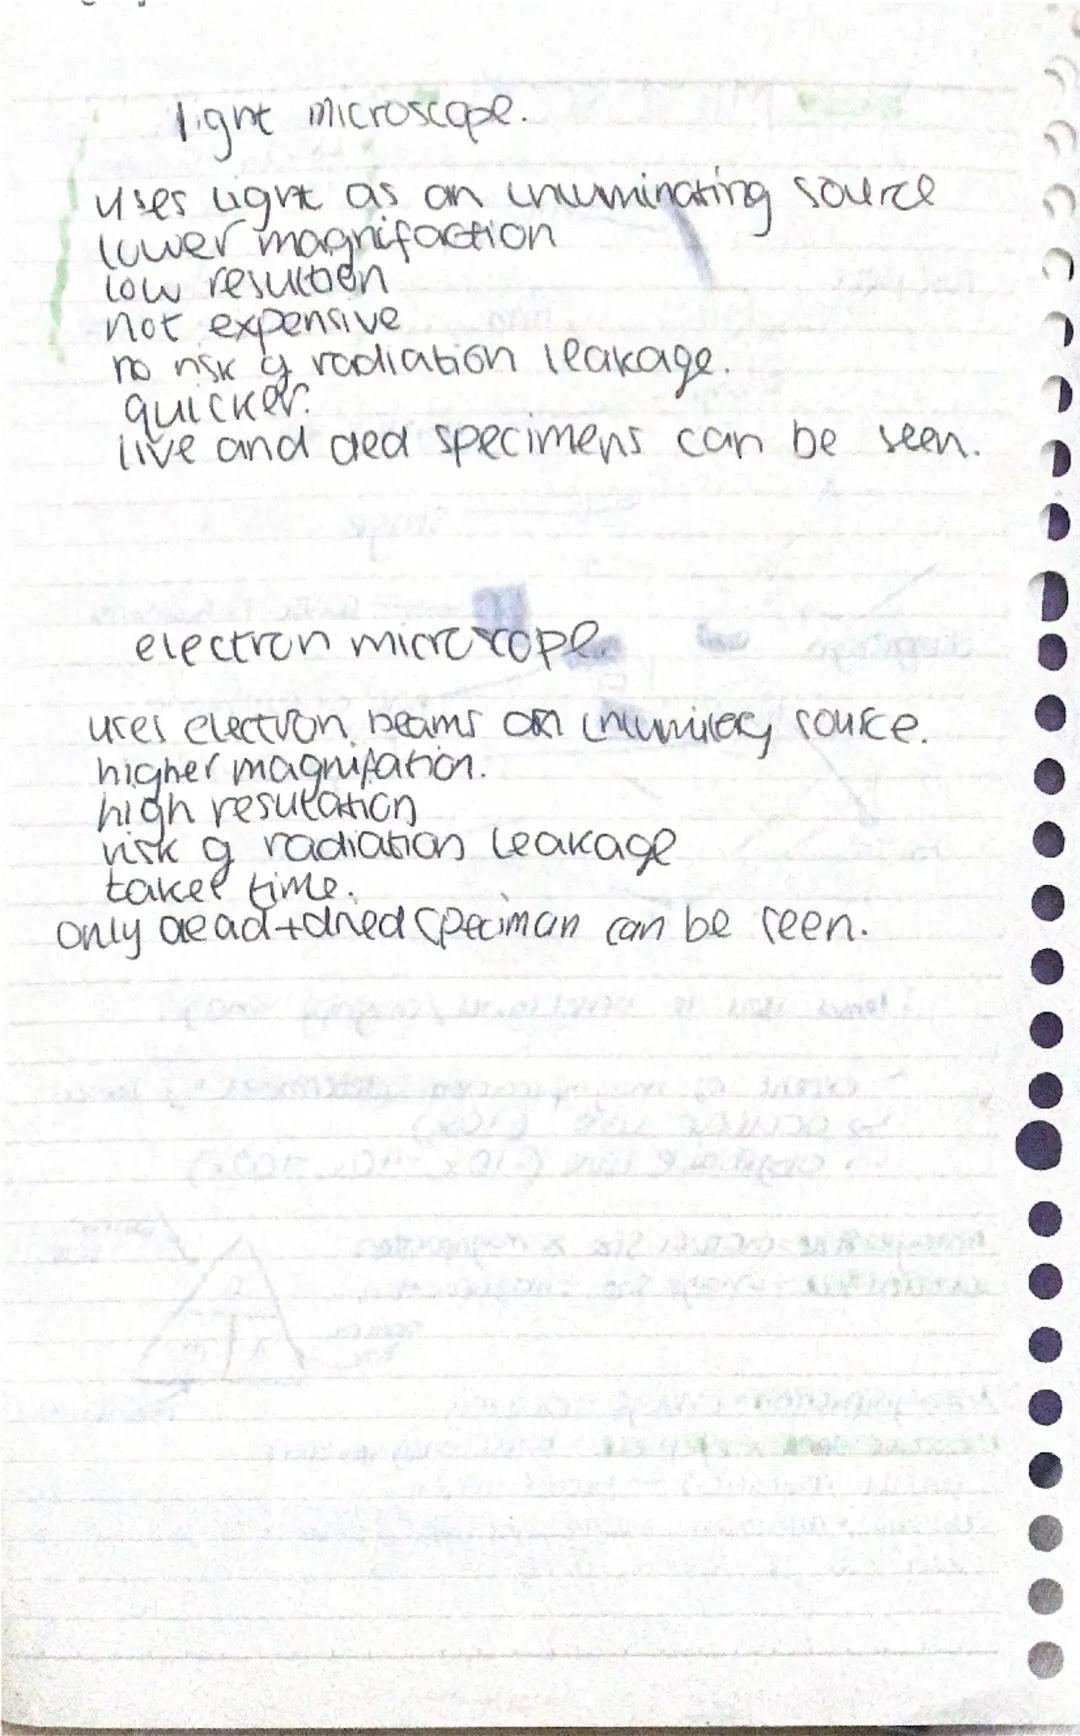 light microscope.
uses light as an inuminating source
lower magnifaction
low resultion
not expensive
no risk of radiation leakage.
quicker.
live and ded specimens can be seen.
electron microscope.
uses electron beams as source.
higher magnifation.
high resulation
risk of radiation leakage
takes time.
only dead+dried speciman can be seen.